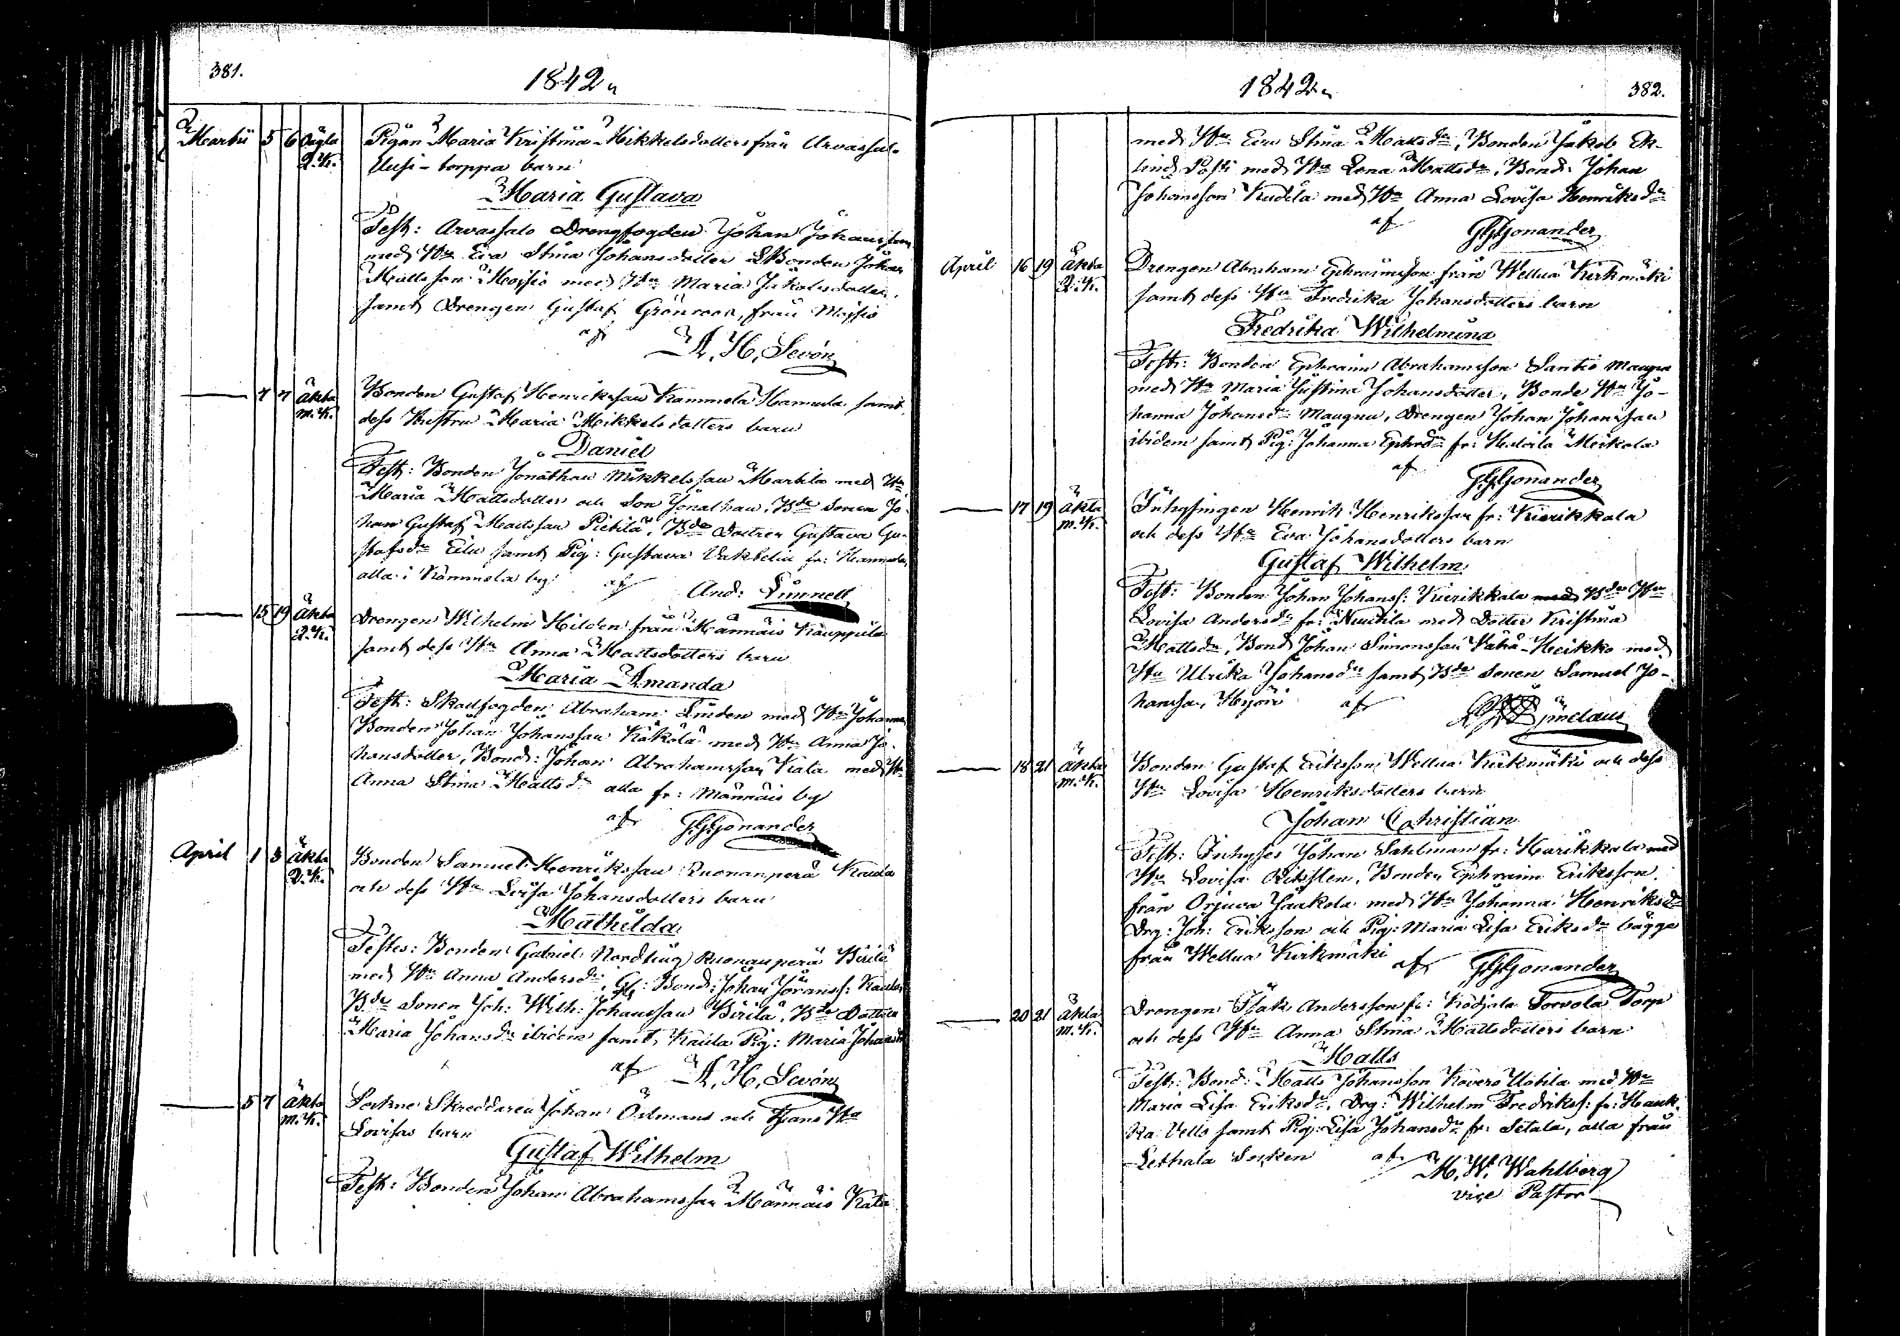 381.
1842
Martii 5 6 Oägta Q.K. Pigan Maria Kristina Mikkelsdotters från Arvassalo
Uusi-torppa barn
Maria Gustava
Test: Arvassalo Drengfogden Johan Johansson
med H:u Eva Stina Johansdotter, Bonden Johan
Mattsson Moisio med H:u Maria Jakobsdotter,
samt Drengen Gustaf Grönroos, från Moisio
af A. H. Sevón
7 7 Äkta m.K. Bonden Gustaf Henriksson Kammela Hannula samt
dess Hustru Maria Mikkelsdotters barn
Daniel
Test: Bonden Jonathan Mikkelsson Markila med H:u
Maria Mattsdotter och Son Jonathan, B:de Sonen Jo-
han Gustaf Mattsson Pietilä, B:de Dottren Gustava Gu-
stafsd:r Eilu samt Pig: Gustava fr: Hannula
alla i Kammela by af And: Linnell
15 19 Äkta Q.K. Drengen Wilhelm Hildén från Männäis Kauppila
samt dess H:u Anna Mattsdotters barn
Maria Amanda
Test: Skallfogden Abraham Lindén med H:u Johanna,
Bonden Johan Johansson Kåkola med H:u Anna Jo-
hansdotter, Bond: Johan Abrahamsson Kata med H:u
Anna Stina Mattsd:r alla fr: Männäis by
af G. Gonander
April 1 3 Äkta Q.K. Bonden Samuel Henriksson Ruonanperä Kaula
och dess H:u Lovisa Johansdotters barn
Mathilda
Testes: Bonden Gabriel Nordling Ruonanperä Birilä
med H:u Anna Andersd:r, Gl: Bond: Johan Göranss: Kaula
B:de Sonen Joh: Wilh: Johansson Birilä, B:de Dottren
Maria Johansd:r ibidem samt Kaula Pig: Maria Johansd:r
af A. H. Sevón
5 7 Äkta m.K. Sockne Skreddaren Johan Östmans och Hans H:u
Lovisas barn
Gustaf Wilhelm
Test: Bonden Johan Abrahamsson Männäis Kata
1842
382.
med H:u Eva Stina Mattsd:r, Bonden Jakob Ek-
lind med H:u Lena Mattsd:r, Bond: Johan
Johansson Kudila med H:u Anna Lovisa Henriksd:r
af G. Gonander
April 16 19 Äkta Q.K. Drengen Abraham Ephraimsson från Wellua Kirkmäki
samt dess H:u Fredrika Johansdotters barn
Fredrika Wilhelmina
Test: Bonden Ephraim Abrahamsson Santio Maugnu
med H:u Maria Justina Johansdotter, Bonde H:u Jo-
hanna Johansd:r Maugnu, Drengen Johan Johansson
ibidem samt Pig: Johanna Ephrd:r fr: Meikola
af G. Gonander
17 19 Äkta m.K. Inhysingen Henrik Henriksson fr: Kierikkala
och dess H:u Eva Johansdotters barn
Gustaf Wilhelm
Test: Bonden Johan Johanss: Kierikkala B:de H:u
Lovisa Andersd:r fr: Nuutila med Dotter Kristina
Mattsd:r, Bond: Johan Simonsson Vähä-Heikko med
H:u Ulrika Johansd:r samt B:de Sonen Samuel Jo-
hansson, Hejöri af
18 21 Äkta m.K. Bonden Gustaf Eriksson Wellua Kirkmäki och dess
H:u Lovisa Henriksdotters barn
Johan Christian
Test: Inhyses Johan Sahlman fr: Karikkala med
H:u Lovisa, Bonden Ephraim Eriksson
från Orjuva Jaakola med H:u Johanna Henriksd:r
Drg: Joh: Eriksson och Pig: Maria Lisa Eriksd:r bägge
från Wellua Kirkmäki af G. Gonander
20 21 Äkta m.K. Drengen Isak Andersson fr: Kodjala Torvola Torp
och dess H:u Anna Stina Mattsdotters barn
Matts
Test: Bond: Matts Johansson Kovero Uotila med H:u
Maria Lisa Eriksd:r, Drg: Wilhelm Fredrikss: fr: Hauk-
ka Vello samt Pig: Lisa Johansd:r fr: Setala, alla från
Lethala Socken af M. W. Wahlberg
vice Pastor